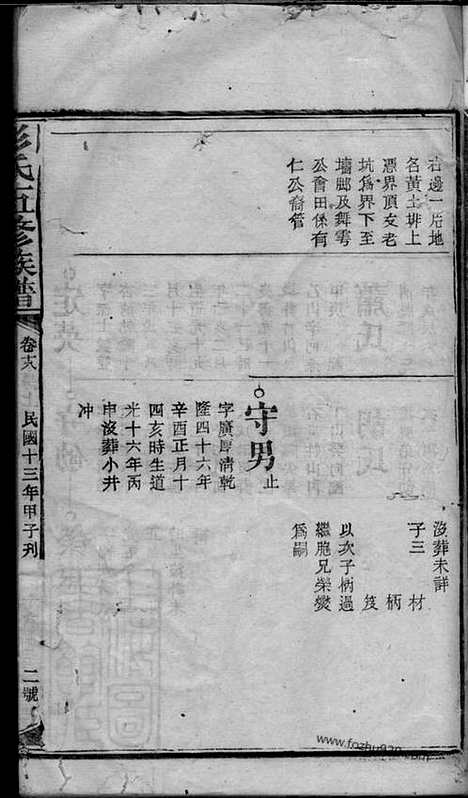 右邊一片地
名黃土排上
憑界頂支老
坑爲界下至
墻脚及舞雩
公會田係有
仁公裔管
沒葬未詳
子三 材
柄
笈
以次子柄過
繼胞兄榮爕
爲嗣
守男止
字廣厚清乾
隆四十六年
辛酉正月十
四亥時生道
光十六年丙
申沒葬小井
冲
彭氏五修族譜
民國十三年甲子刋
二號
www.fozhu920.com